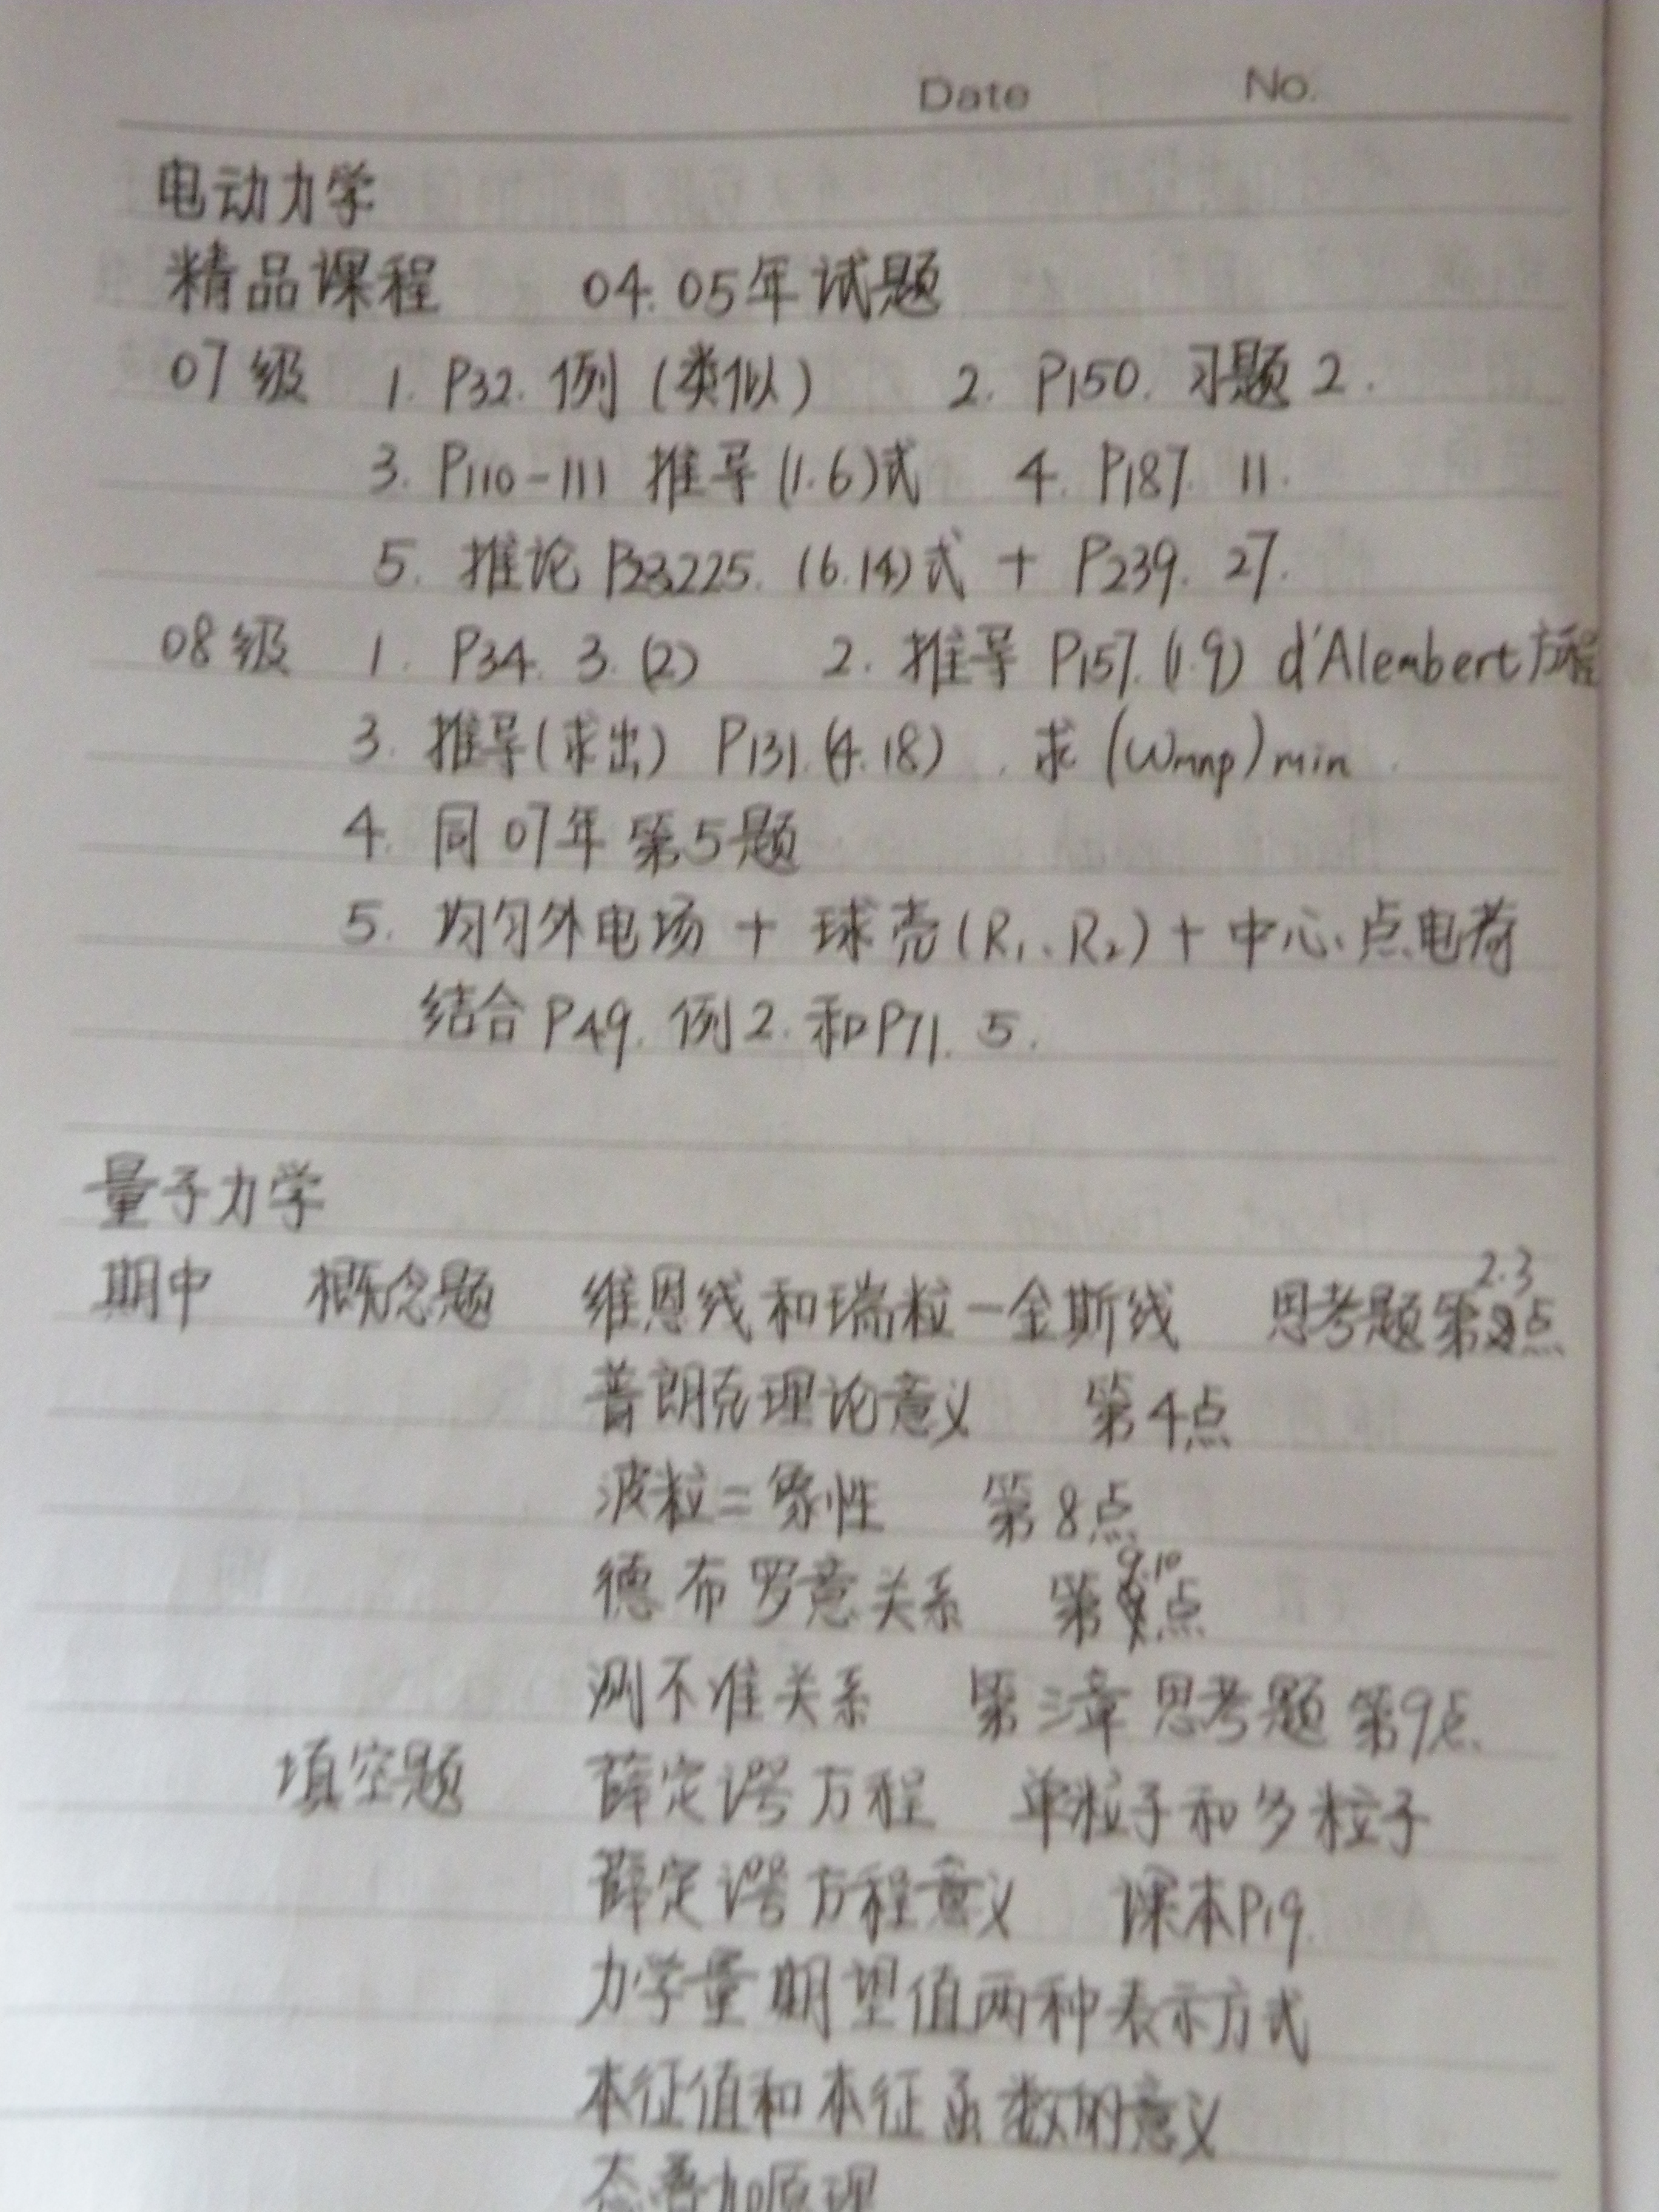 Date No.
电动力学
精品课程 04.05年试题
07级 1. P32. 例 (类似) 2. P150. 习题 2.
3. P110-111 推导 (1.6)式 4. P187. 11.
5. 推论 (6.14)式 + P239. 27.
08级 1. P34. 3. (2) 2. 推导 P157. (1.9) d'Alembert方程
3. 推导(求出) P131. (4.18) . 求 (ωmnp)min.
4. 同07年第5题
5. 均匀外电场 + 球壳(R1、R2) + 中心点电荷
结合P49. 例2. 和P71. 5.
量子力学
期中 概念题 维恩线和瑞粒-金斯线 思考题第2.3点
普朗克理论意义 第4点
波粒二象性 第8点
德布罗意关系 第9.10点
测不准关系 第三章思考题第9点
填空题 薛定谔方程 单粒子和多粒子
薛定谔方程意义 课本P19.
力学量期望值两种表示方式
本征值和本征函数的意义
态叠加原理